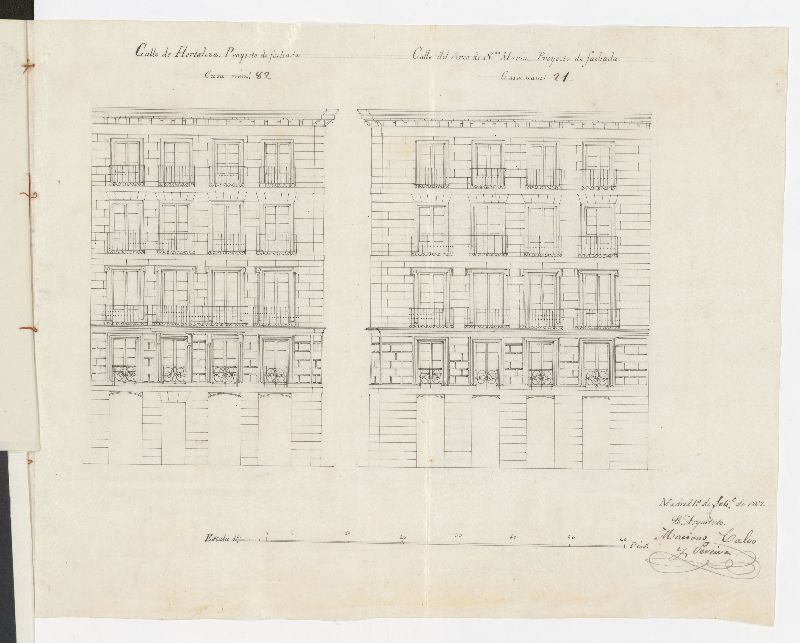 Calle de Hortaleza. Proyecto de fachada
Casa num.º 82
Calle del Arco de N.ª Maria. Proyecto de fachada.
Casa num.º 21.
Escala de
Pies.
Madrid 1º de de
El Arquitecto.
Mariano Calvo
y Pereira